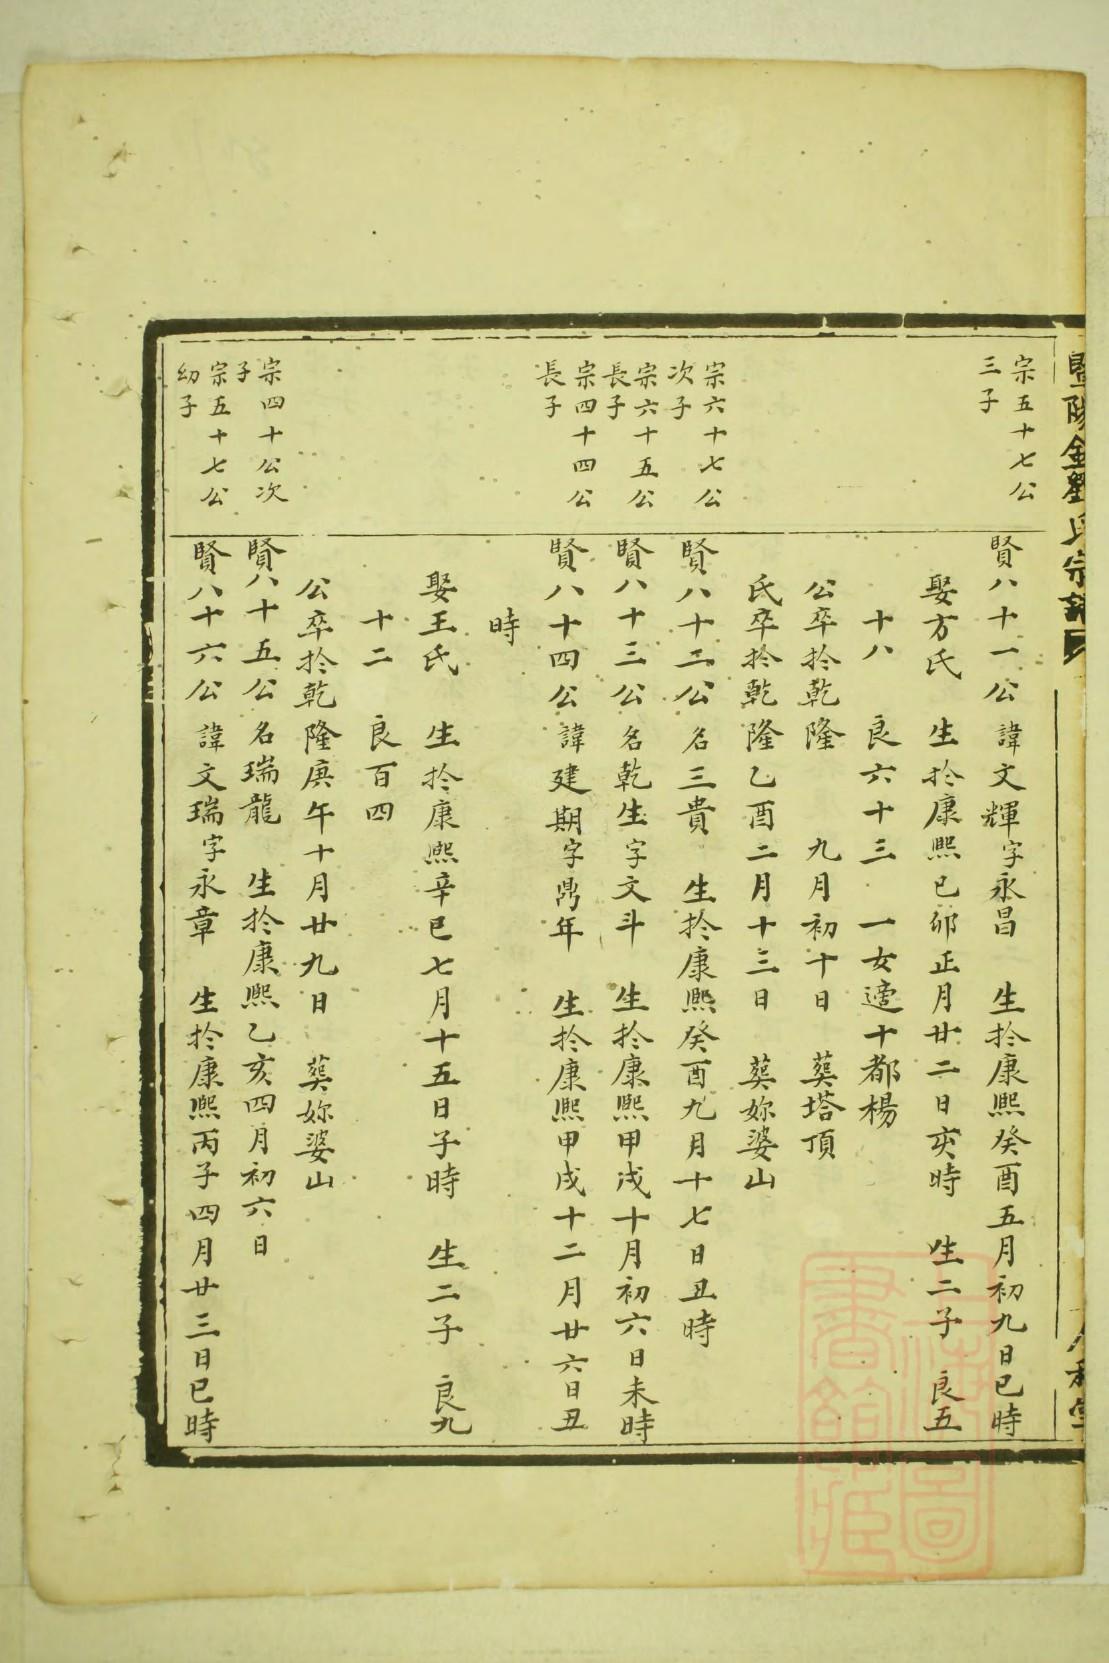 暨陽金劉氏宗譜
宗五十七公
三子
賢八十一公諱文輝字永昌 生扵康熙癸酉五月初九日巳時
娶方氏 生扵康熙己卯正月廿二日亥時 生二子 良五
十八 良六十三 一女適十都楊
公卒扵乾隆 九月初十日 葬塔頂
氏卒扵乾隆乙酉二月十三日 葬妳婆山
宗六十七公
次子
賢八十二公名三貴 生扵康熙癸酉九月十七日丑時
宗六十五公
長子
賢八十三公名乾生字文斗 生扵康熙甲戌十月初六日未時
宗四十四公
長子
賢八十四公諱建期字鼎年 生扵康熙甲戌十二月廿六日丑
時
娶王氏 生扵康熙辛巳七月十五日子時 生二子 良九
十二 良百四
公卒扵乾隆庚午十月廿九日 葬妳婆山
宗四十公次
子
賢八十五公名瑞龍 生扵康熙乙亥四月初六日
宗五十七公
幼子
賢八十六公諱文瑞字永章 生扵康熙丙子四月廿三日巳時